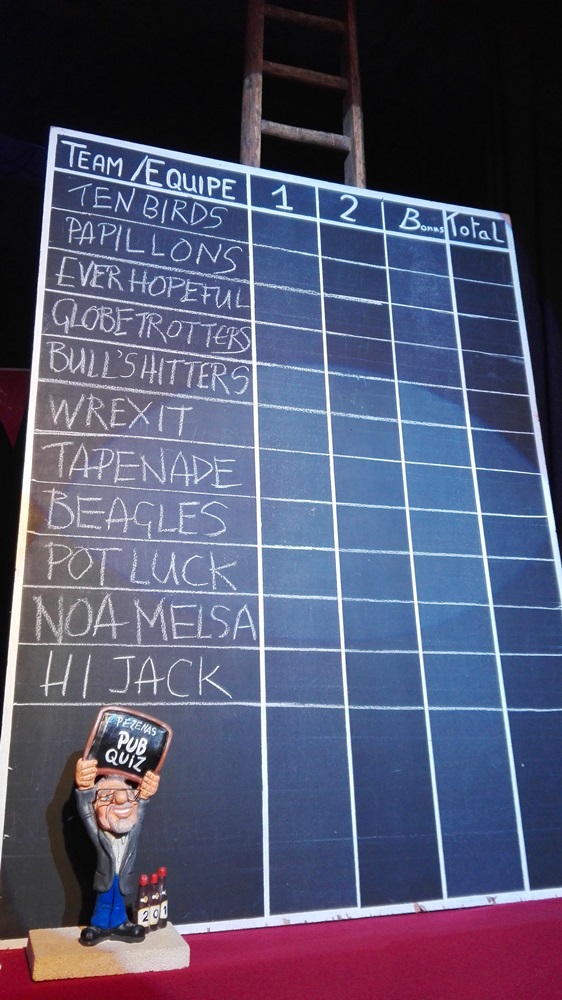 TEAM/EQUIPE 1 2 Bonus Total
TEN BIRDS
PAPILLONS
EVER HOPEFUL
GLOBETROTTERS
BULL'SHITTERS
WREXIT
TAPENADE
BEAGLES
POT LUCK
NOA MELSA
HI JACK
PEZENAS
PUB
QUIZ
201